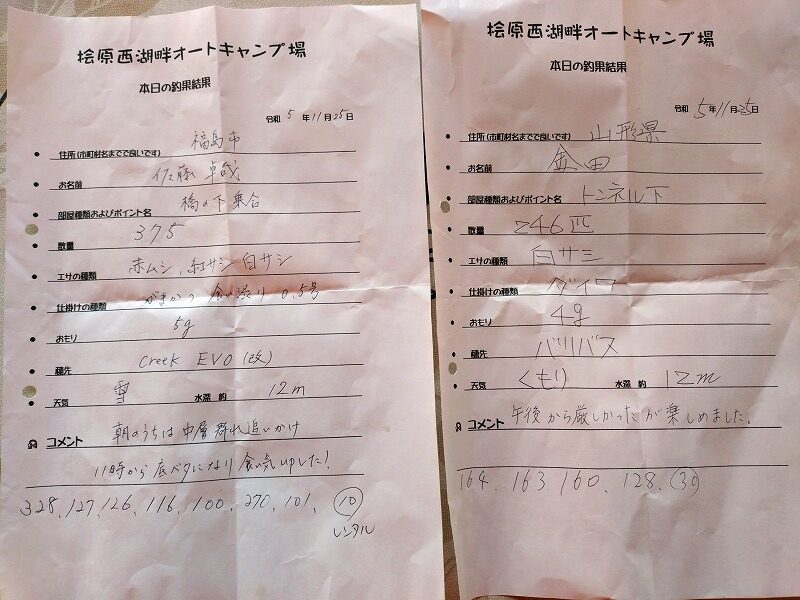 桧原西湖畔オートキャンプ場
本日の釣果結果
令和 5 年 11 月 25 日
住所(市町村名までで良いです) 福島市
お名前 佐藤 卓哉
部屋種類およびポイント名 橋の下乗合
数量 375
エサの種類 赤ムシ、紅サシ 白サシ
仕掛けの種類 がまかつ 食い渋り 0.5号
おもり 5g
穂先 Creek EVO (改)
天気 雪 水深 約 12m
コメント 朝のうちは中層群れ追いかけ
11時から底ベタになり食い気
328. 127. 126. 116. 100. 270. 101. (10)
レンタル
桧原西湖畔オートキャンプ場
本日の釣果結果
令和 5 年 11 月 25 日
住所(市町村名までで良いです) 山形県
お名前 金田
部屋種類およびポイント名 トンネル下
数量 246匹
エサの種類 白サシ
仕掛けの種類 ダイワ
おもり 4g
穂先 バリバス
天気 くもり 水深 約 12m
コメント 午後から厳しかったが楽しめました。
164. 163. 160. 128. (30)